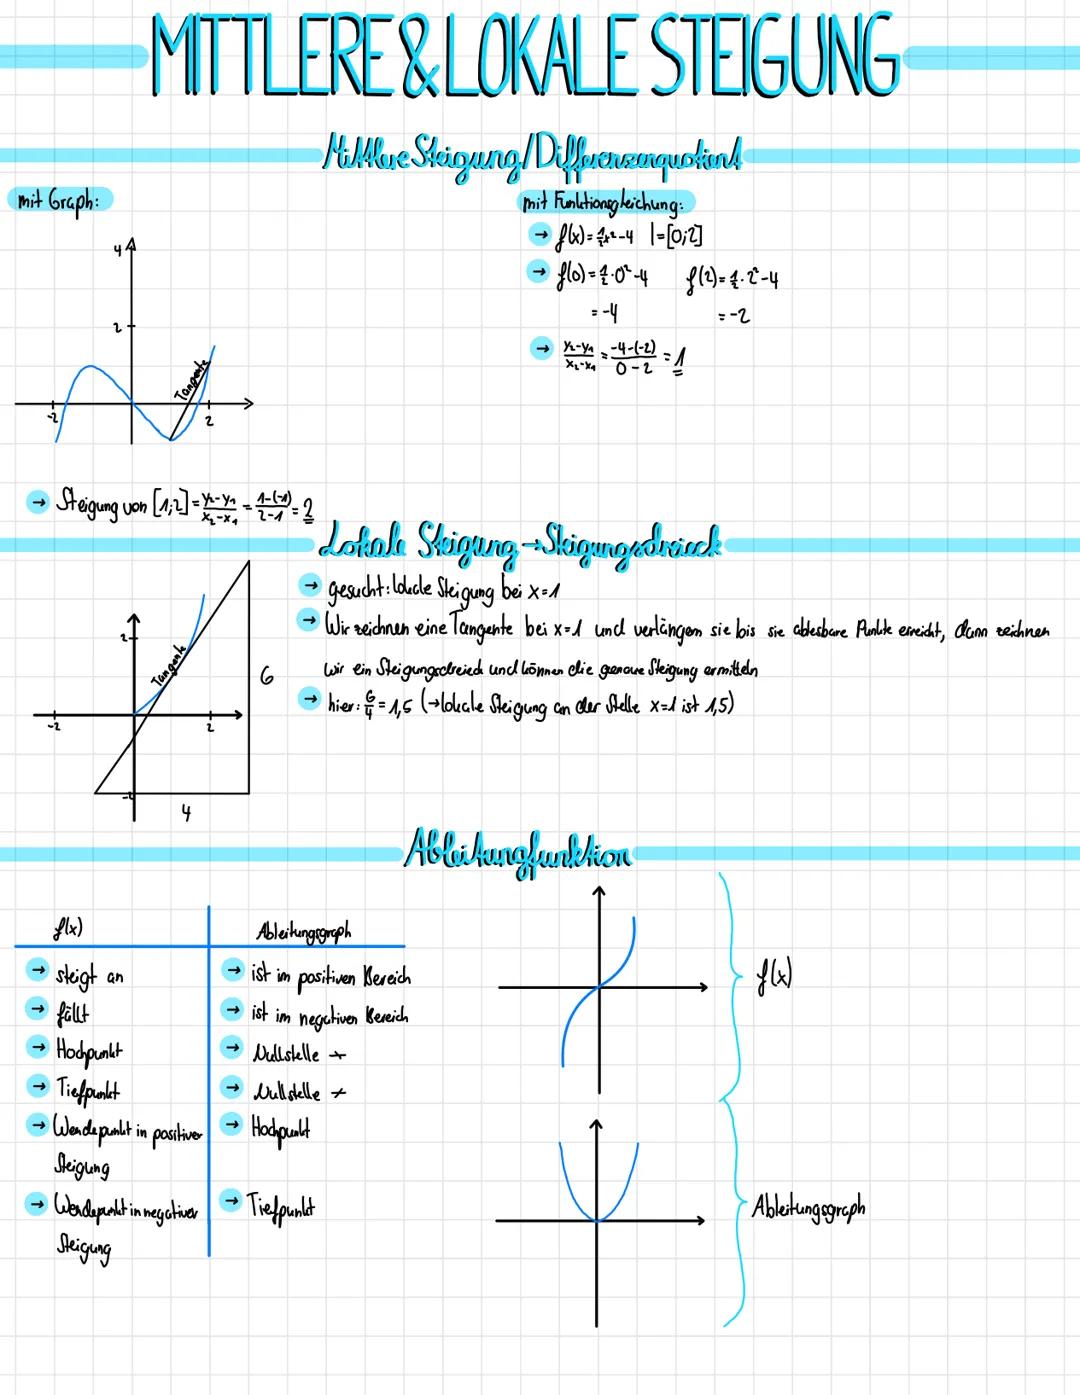 MITTLERE & LOKALE STEIGUNG
Mittlere Steigung/Differenzenquotient
mit Graph:
4
2
Tangente
-2
2
→ Steigung von [1;2] = y₂-y₁/x₂-x₁ = 1-(-1)/2-1 = 2
mit Funktionsgleichung:
→ f(x) = 1/2x²-4 I=[0;2]
→ f(0) = 1/2·0²-4 f(2) = 1/2·2²-4
= -4 = -2
→ y₂-y₁/x₂-x₁ = -4-(-2)/0-2 = 1
Lokale Steigung → Steigungsdreieck
2
Tangente
6
-2
2
-2
4
→ gesucht: lokale Steigung bei x=1
→ Wir zeichnen eine Tangente bei x=1 und verlängern sie bis sie ablesbare Punkte erreicht, dann zeichnen
wir ein Steigungsdreieck und können die genaue Steigung ermitteln
→ hier: 6/4 = 1,5 (→ lokale Steigung an der Stelle x=1 ist 1,5)
Ableitungfunktion
f(x) Ableitungsgraph
→ steigt an → ist im positiven Bereich
→ fällt → ist im negativen Bereich
→ Hochpunkt → Nullstelle
→ Tiefpunkt → Nullstelle
→ Wendepunkt in positiver → Hochpunkt
Steigung
→ Wendepunkt in negativer → Tiefpunkt
Steigung
f(x)
Ableitungsgraph